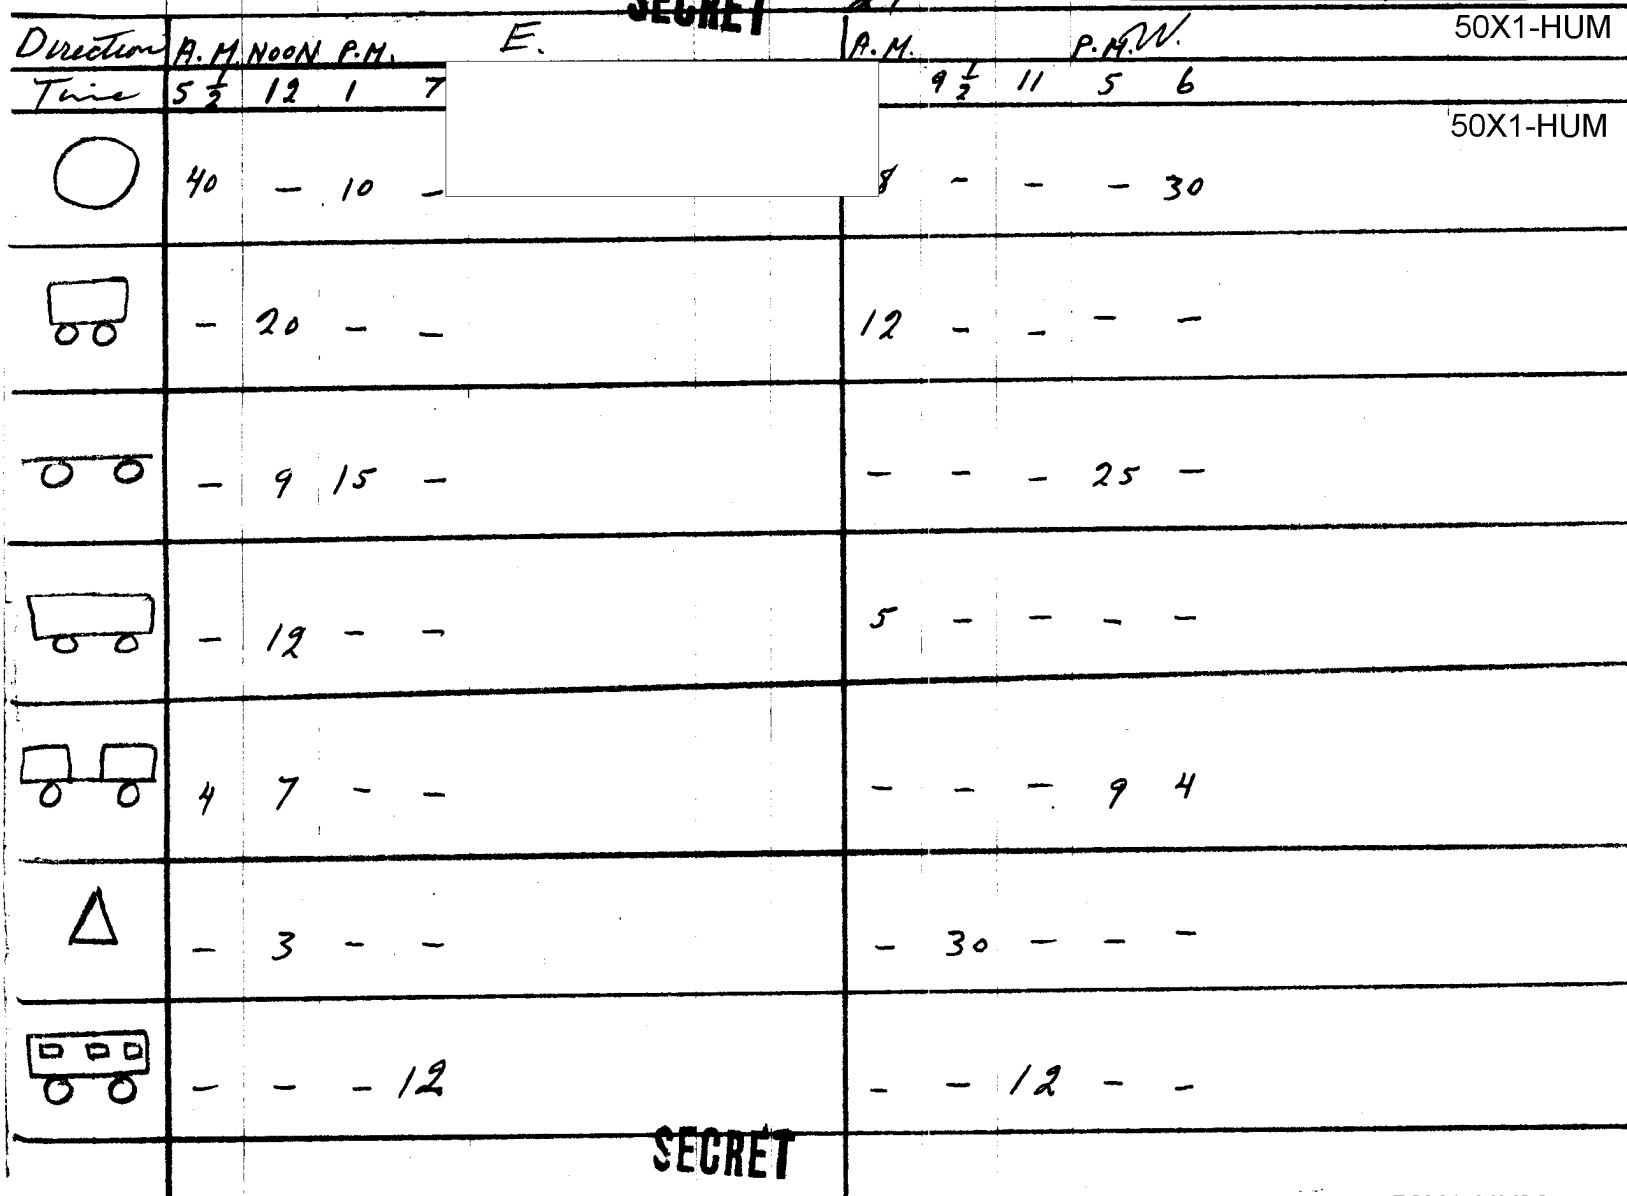 SECRET
50X1-HUM
Direction A.M. NOON P.M. E. A.M. P.M. W.
Time 5 1/2 12 1 7 9 1/2 11 5 6
50X1-HUM
40 - 10 - 8 - - - 30
- 20 - - 12 - - - -
- 9 15 - - - - 25 -
- 12 - - 5 - - - -
4 7 - - - - - 9 4
- 3 - - - 30 - - -
- - - 12 - - 12 - -
SECRET